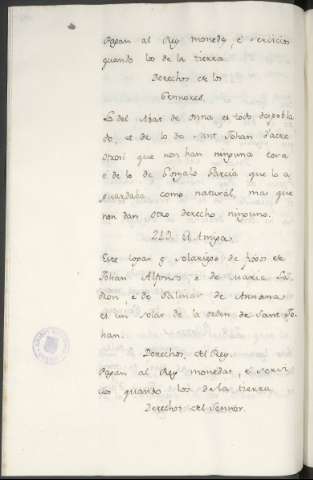 Pagan al Rey monedas, e servicios
quando los de la tierra.
Derechos de los
Sennores.
Lo del Abat de Onna es todo despobla
do, e de lo de Sant Johan Sacre
 que non han ninguna cosa
e de lo de Gonzalo Garcia que lo a
guardado como natural, mas que
non dan otro derecho ninguno.
El Amya.
Este logar es solariego de fijos de
Johan Alfonso, e de Maria La
dron, e de Salinas de Annana
et un solar de la orden de Sant Jo
han.
Derechos del Rey.
Pagan al Rey monedas, e servi
cios quando los de la tierra
Derechos del Sennor.